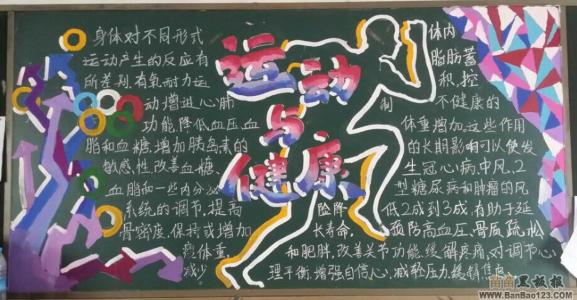 身体对不同形式 体内
运动产生的反应有 脂肪蓄
所差别,有氧耐力运 积,控
动增进心肺 制 不健康的
功能,降低血压,血 体重增加,这些作用
脂和血糖,增加胰岛素的 的长期影响可以使发
敏感性,改善血糖 生冠心病,中风,2
血脂和一些内分泌 型糖尿病和肿瘤的风
系统的调节,提高 险降 低2成到3成,有助于延
骨密度,保持或增加 长寿命, 预防高血压,骨质疏松
瘦体重, 和肥胖,改善关节功能,缓解疼痛,对调节心
减少 理平衡,增强自信心,减轻压力,缓
运动
与
健康
苗苗黑板报
www.BanBao123.com